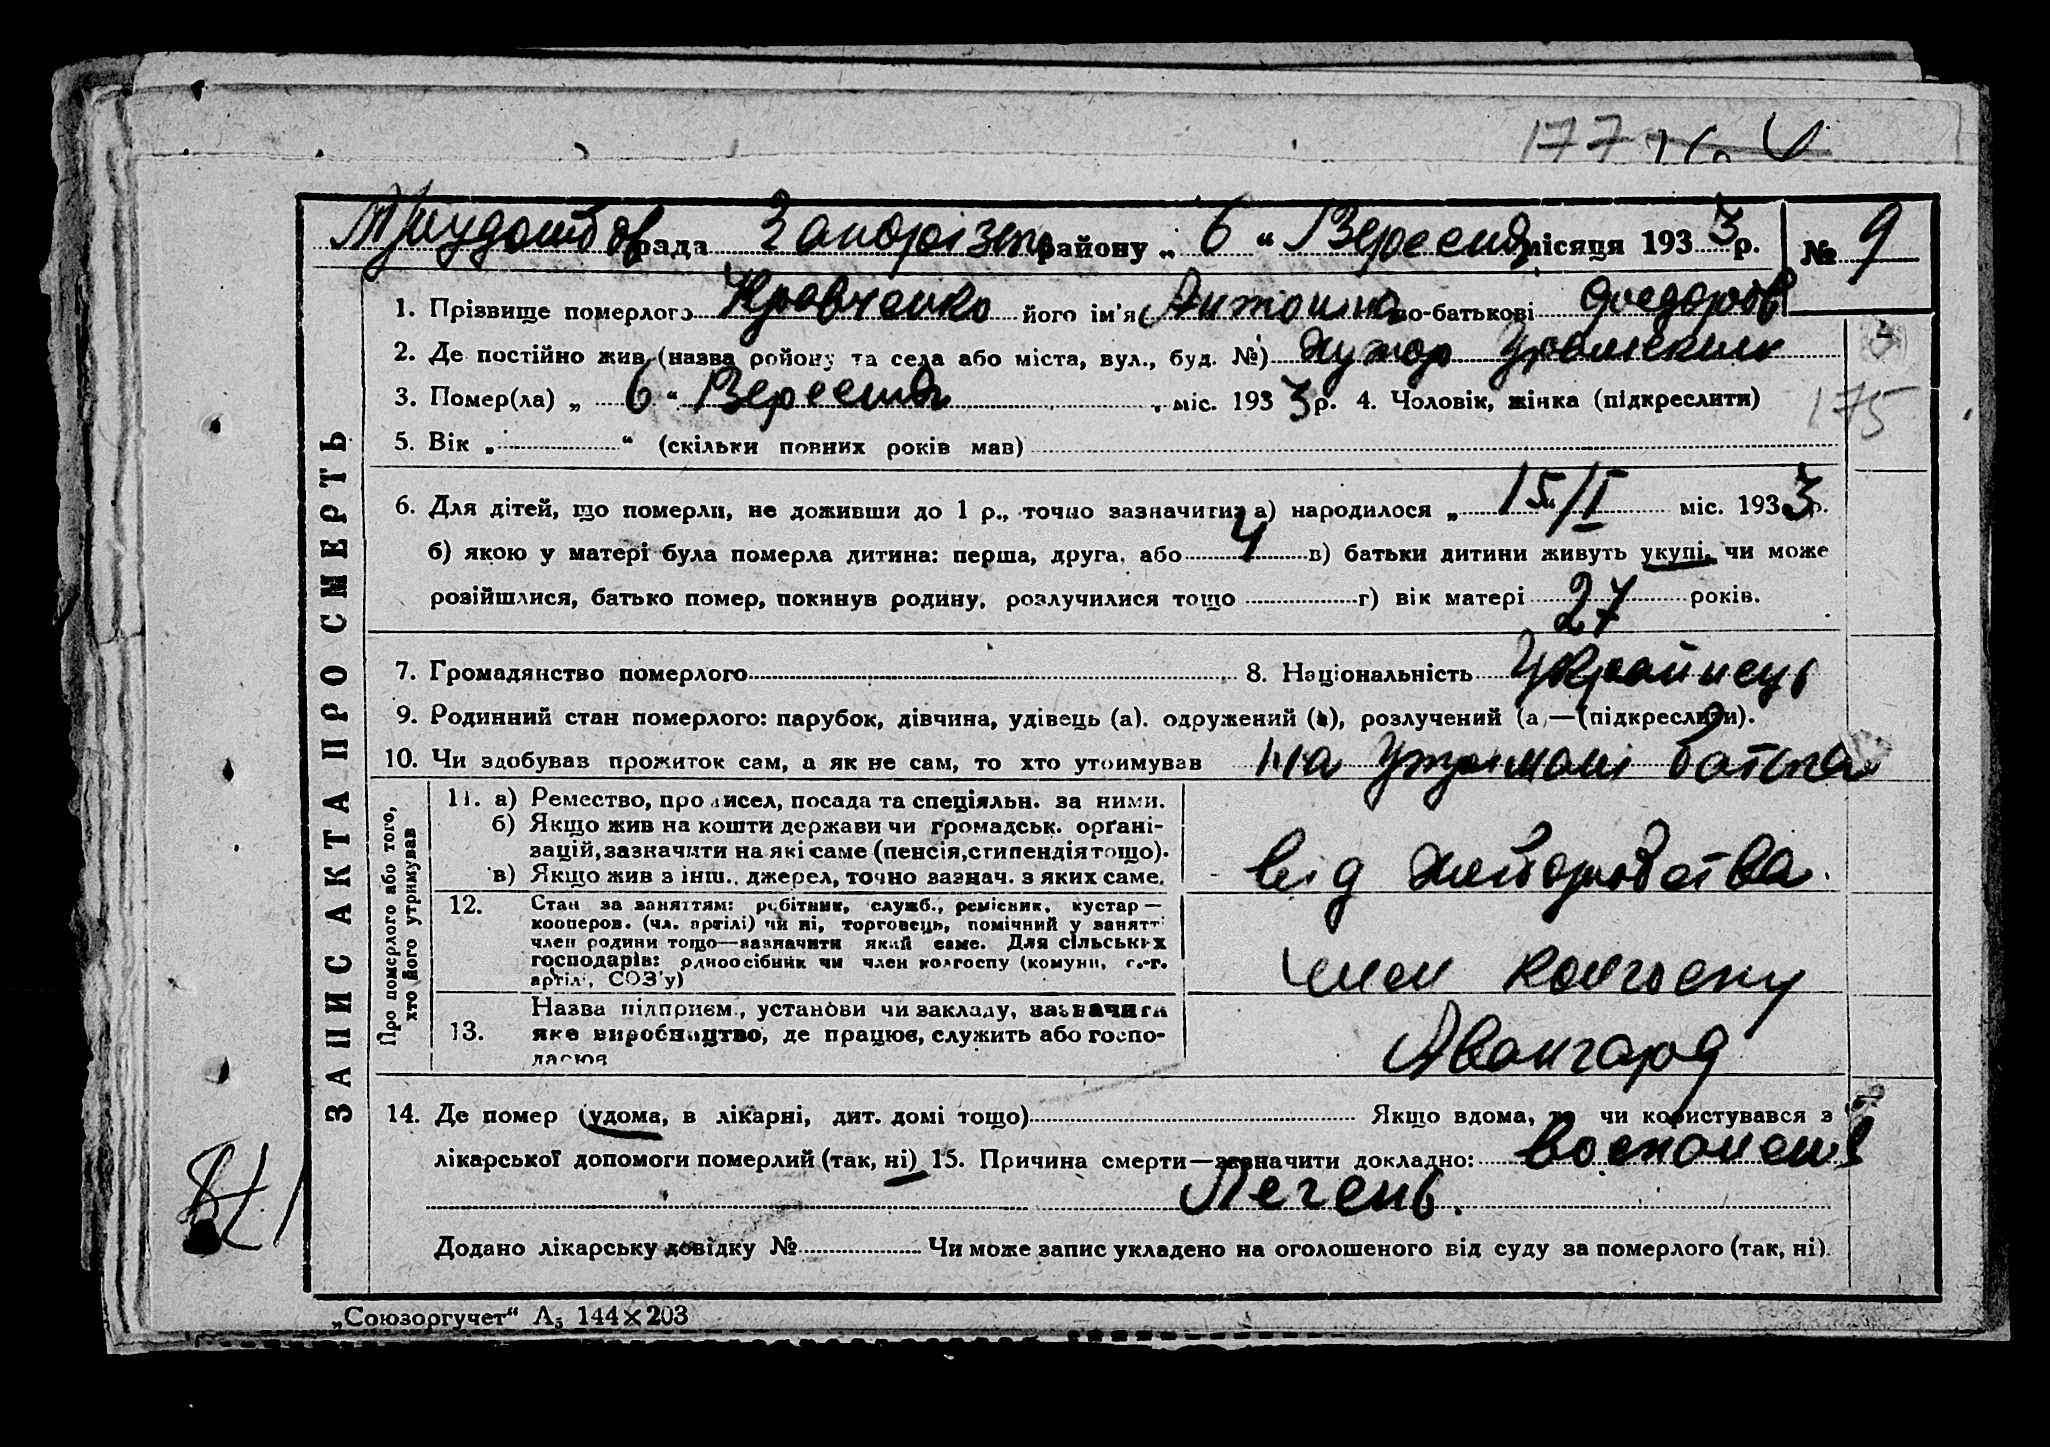 177
рада Запорізьк району „ 6 “ Вересня місяця 193 3 р. № 9
ЗАПИС АКТА ПРО СМЕРТЬ
1. Прізвище померлого Кравченко його ім'я Антоина по-батькові Федоров
2. Де постійно жив (назва району та села або міста, вул., буд. №) Хутор
3. Помер(ла) „ 6 “ Вересня міс. 193 3 р. 4. Чоловік, жінка (підкреслити)
175
5. Вік „ “ (скільки повних років мав)
6. Для дітей, що померли, не доживши до 1 р., точно зазначити: а) народилося „ 15 “ / I міс. 193 3 р.
б) якою у матері була померла дитина: перша, друга, або 4 в) батьки дитини живуть укупі, чи може
розійшлися, батько помер, покинув родину, розлучилися тощо г) вік матері 27 років.
7. Громадянство померлого 8. Національність Українець
9. Родинний стан померлого: парубок, дівчина, удівець (а). одружений (а), розлучений (а — (підкреслити).
10. Чи здобував прожиток сам, а як не сам, то хто утримував На утрімані батька
Про померлого або того, хто його утримував
11. а) Ремество, промисел, посада та спеціяльн. за ними.
б) Якщо жив на кошти держави чи громадськ. орґані-
зацій, зазначити на які саме (пенсія, стипендія тощо).
в) Якщо жив з інш. джерел, точно зазнач. з яких саме.
від хліборобства
12. Стан за заняттям: робітник, служб., ремісник, кустар —
кооперов. (чл. артілі) чи ні, торговець, помічний у занятті
член родини тощо—зазначити який саме. Для сільських
господарів: одноосібник чи член колгоспу (комуни, с.-г.
артілі, СОЗ'у)
член колгоспу
13. Назва підприєм., установи чи закладу, зазначити
яке виробництво, де працює, служить або госпо-
дарює
Авангард
14. Де помер (удома, в лікарні, дит. домі тощо) Якщо вдома, то чи користувався з
лікарської допомоги померлий (так, ні) 15. Причина смерти—зазначити докладно: Восполеня
Легень.
Додано лікарську довідку № Чи може запис укладено на оголошеного від суду за померлого (так, ні).
„Союзоргучет“ А₅ 144×203